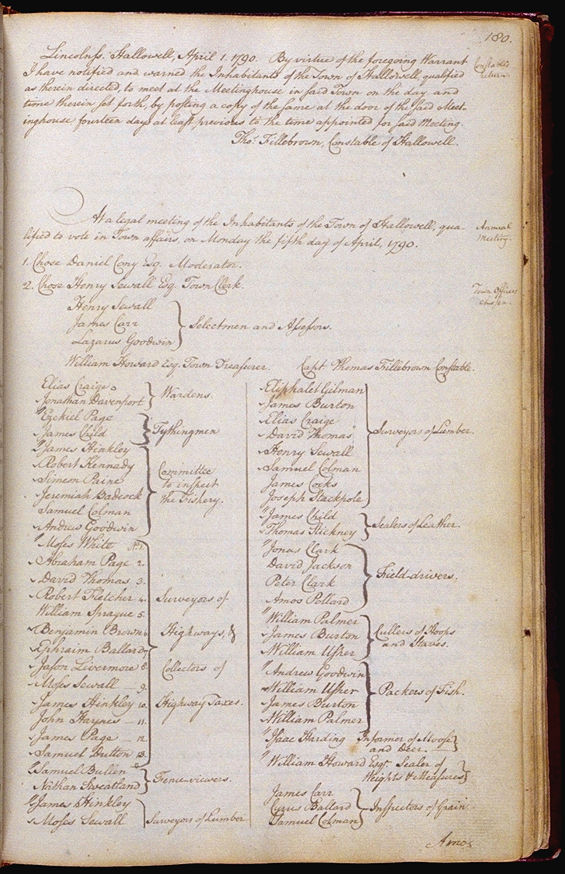 180.
Lincolnss. Hallowell, April 1. 1790. By virtue of the foregoing Warrant
I have notified and warned the Inhabitants of the Town of Hallowell, qualified
as herein directed, to meet at the Meetinghouse in said Town on the day and
time therein set forth, by posting a copy of the same at the door of the said Meet-
inghouse fourteen days at least previous to the time appointed for said Meeting
Thos. Fillebrown, Constable of Hallowell.
Constable's
return
At a legal meeting of the Inhabitants of the Town of Hallowell, qua-
lified to vote in Town affairs, on Monday the fifth day of April, 1790.
Annual
Meeting.
1. Chose Daniel Cony Esq. Moderator.
2. Chose Henry Sewall Esq. Town Clerk.
Town Officers
chosen.
Henry Sewall
James Carr
Lazarus Goodwin
Selectmen and Assessors.
William Howard Esq. Town Treasurer. Capt Thomas Fillebrown Constable.
Elias Craige
Jonathan Davenport
Wardens.
Ezekiel Page
James Child
Tythingmen
James Hinkley
Robert Kennady
Simeon Paine
Jeremiah Babcock
Samuel Colman
Andrew Goodwin
Committee
to inspect
the Fishery.
Moses White No. 1
Abraham Page 2.
David Thomas 3.
Robert Fletcher 4.
William Sprague 5.
Benjamin Brown 6
Ephraim Ballard 7
Jason Livermore 8.
Moses Sewall 9.
James Hinkley 10.
John Haynes 11.
James Page 12.
Samuel Dutton 13.
Surveyors of
Highways, &
Collectors of
Highway Taxes.
Samuel Bullen
Nathan Sweatland
Fence-viewers.
James Hinkley
Moses Sewall
Surveyors of Lumber
Eliphalet Gilman
James Burton
Elias Craige
David Thomas
Henry Sewall
Samuel Colman
James Cocks
Joseph Stackpole
Surveyors of Lumber.
James Child
Thomas Stickney
Sealers of Leather.
Jonas Clark
David Jackson
Peter Clark
Amos Pollard
Field-drivers.
William Palmer
James Burton
William Usher
Cullers of Hoops
and Staves.
Andrew Goodwin
William Usher
James Burton
William Palmer
Packers of Fish.
Isaac Harding Informer of Moose
and Deer.
William Howard Esqr. Sealer of
Weights & Measures
James Carr
Ballard
Samuel Colman
Inspectors of Grain
Amos